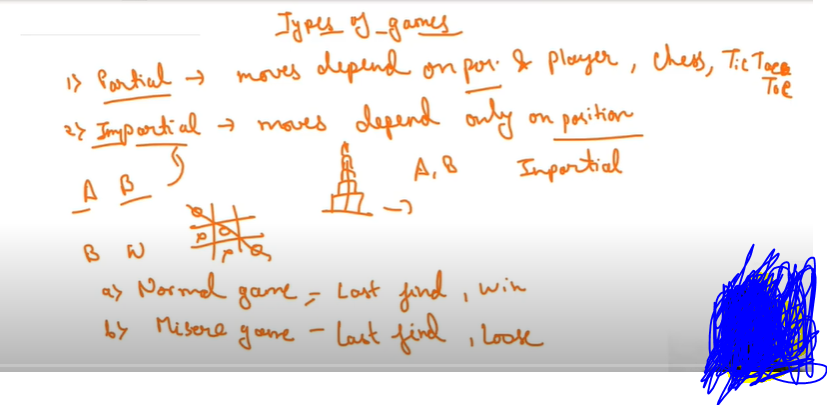 Types of games
1) Partial → moves depend on pos. & player, chess, Tic Tac
Toe
2) Impartial → moves depend only on position
A B
A, B Impartial
B W
a) Normal game - Last find, win
b) Misere game - Last find, loose